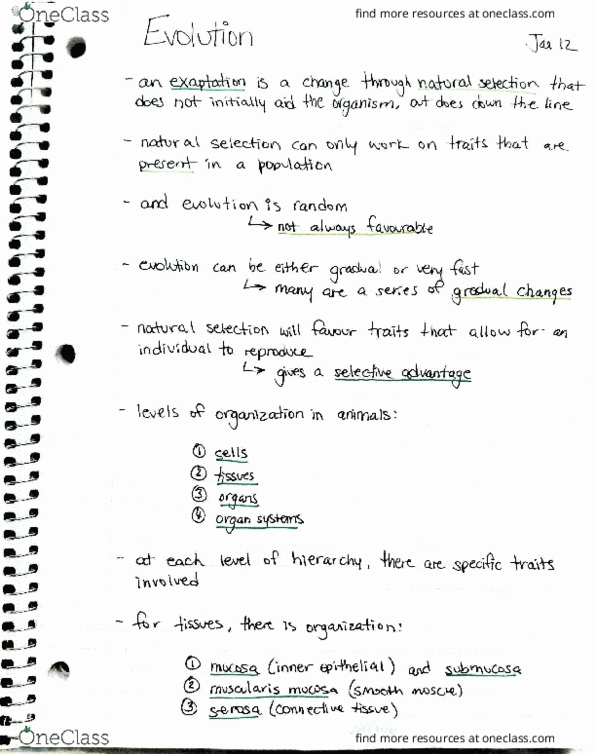 OneClass
find more resources at oneclass.com
Evolution
Jan 12
- an exaptation is a change through natural selection that
does not initially aid the organism, but does down the line
- natural selection can only work on traits that are
present in a population
- and evolution is random
↳ not always favourable
- evolution can be either gradual or very fast
↳ many are a series of gradual changes
- natural selection will favour traits that allow for an
individual to reproduce
↳ gives a selective advantage
- levels of organization in animals:
① cells
② tissues
③ organs
④ organ systems
- at each level of hierarchy, there are specific traits
involved
- for tissues, there is organization:
① mucosa (inner epithelial) and submucosa
② muscularis mucosa (smooth muscle)
③ serosa (connective tissue)
OneClass
find more resources at oneclass.com